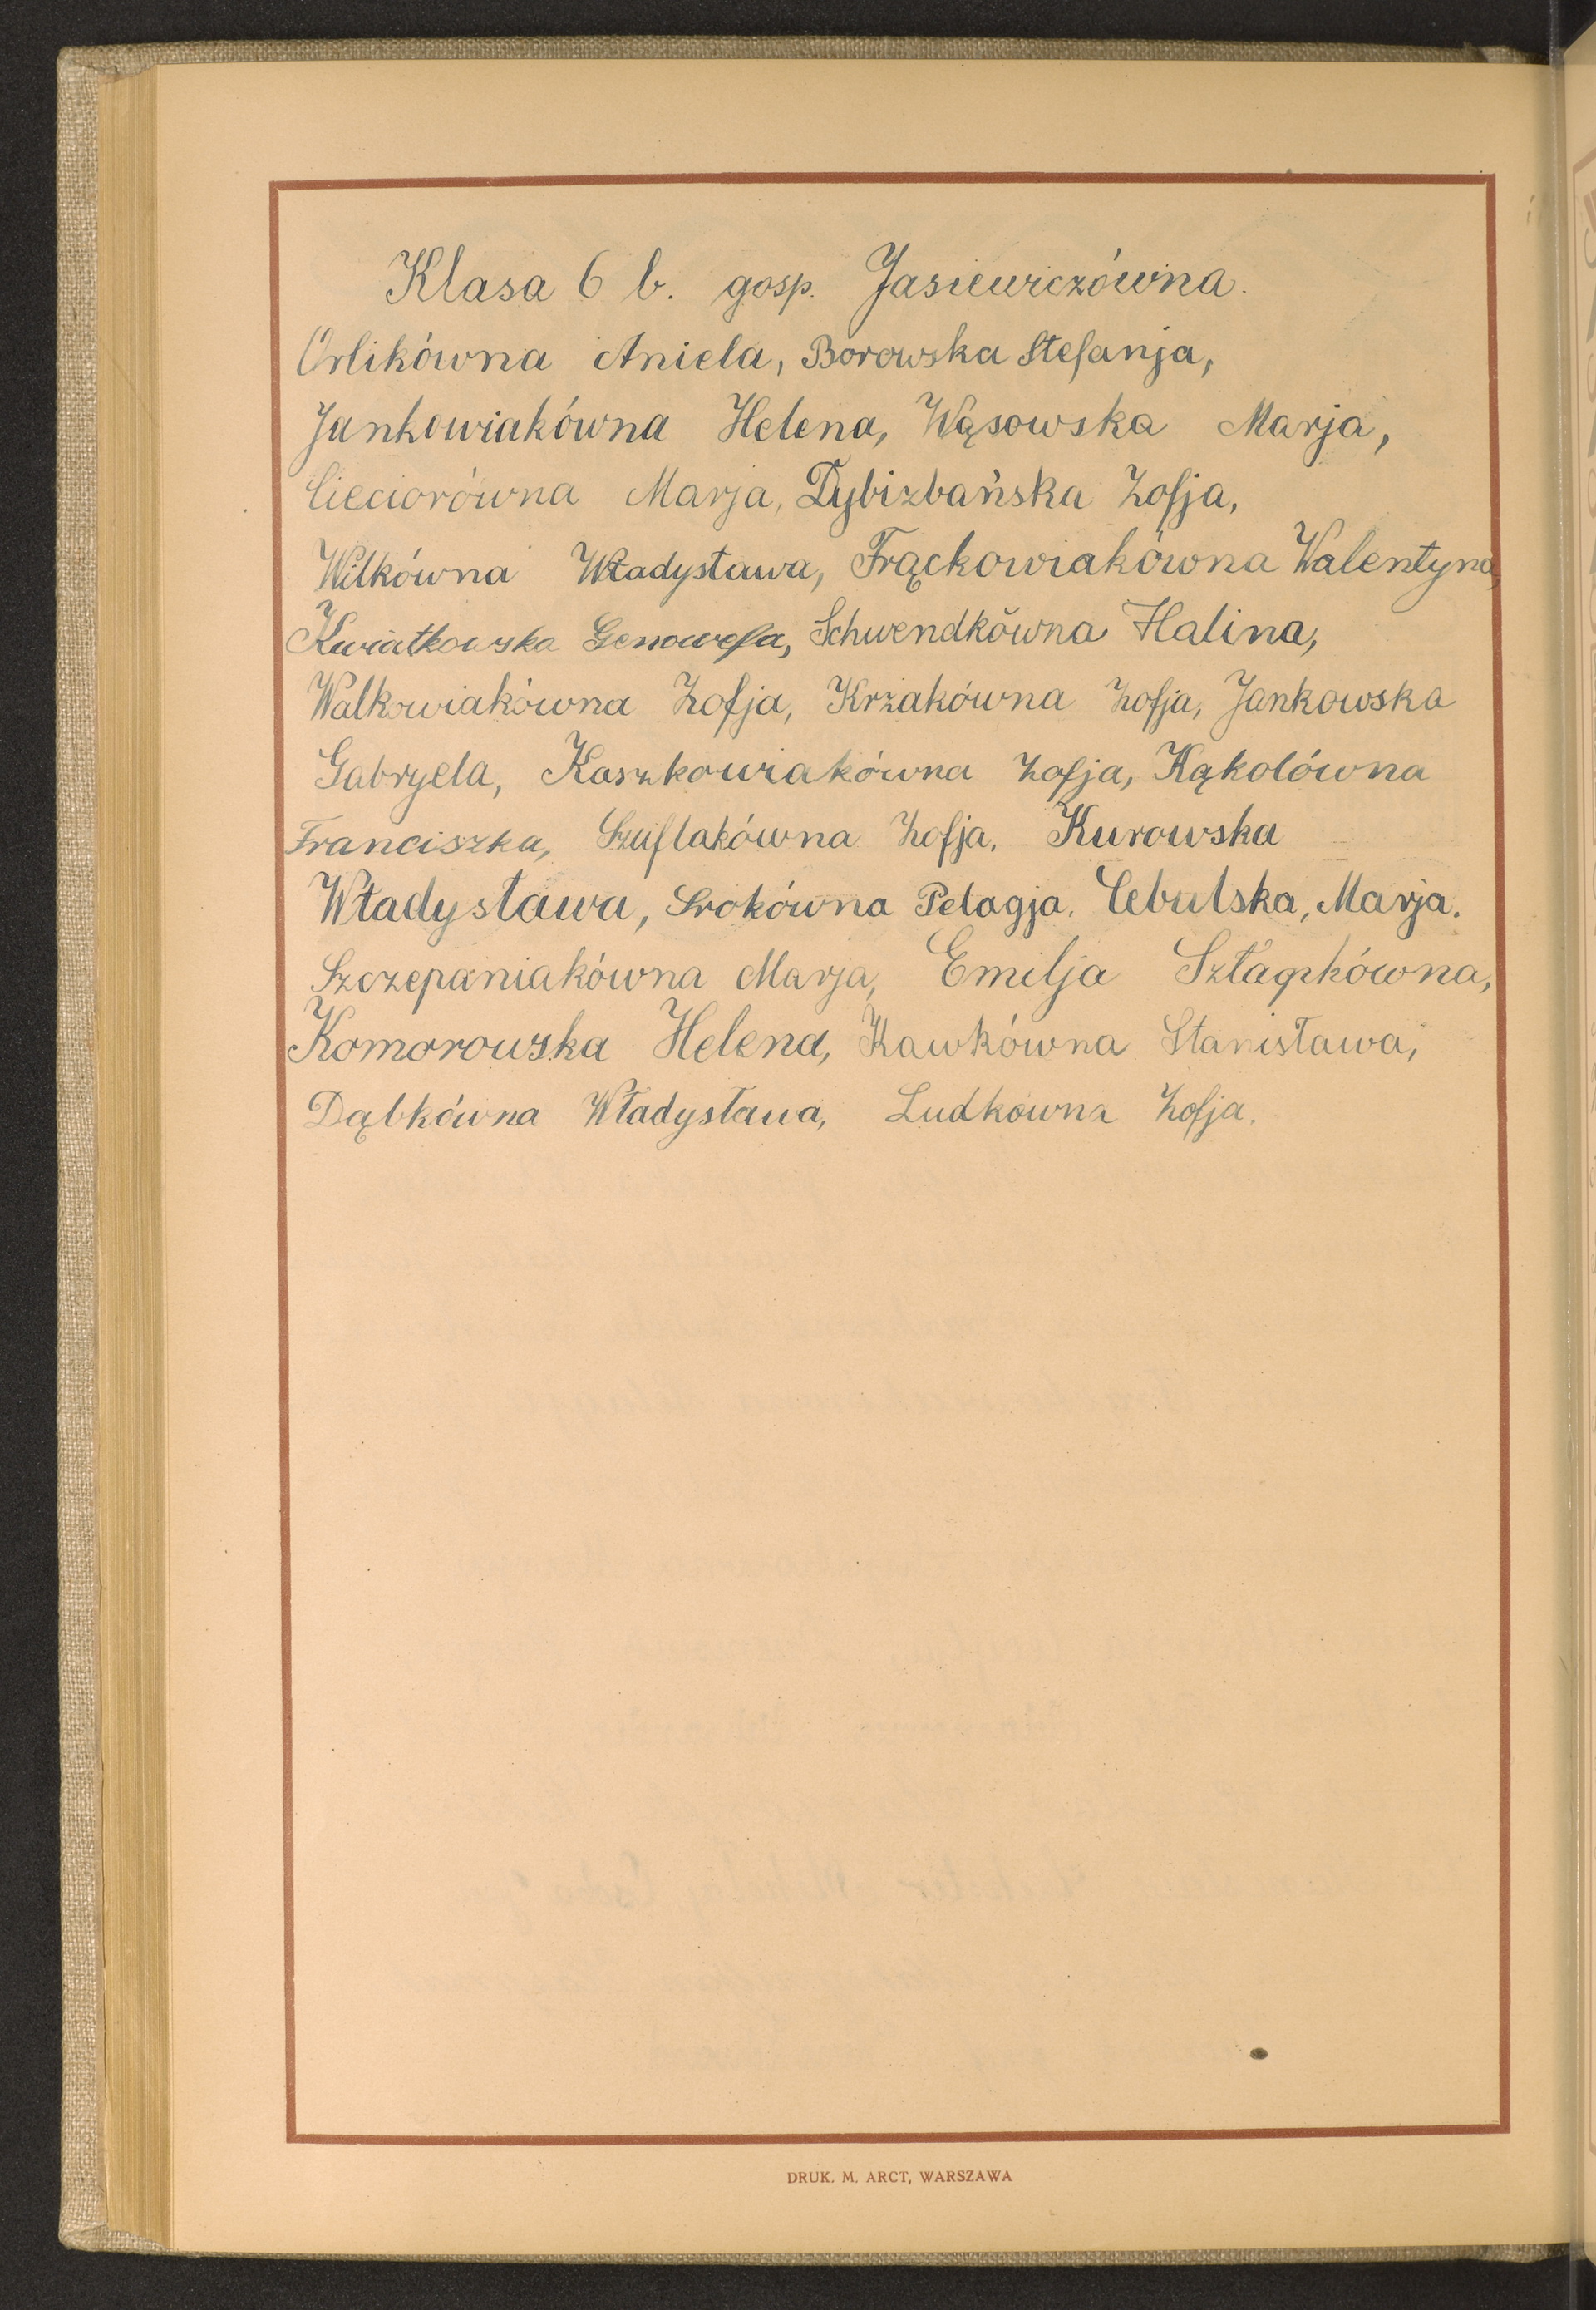 Klasa 6 b. gosp. Jasiewiczówna.
Orlikówna Aniela, Borowska Stefanja,
Jankowiakówna Helena, Wąsowska Marja,
Cieciorówna Marja, Dybizbańska Zofja,
Wilkówna Władysława, Frąckowiakówna Walentyna,
Kwiatkowska Genowefa, Schwendkówna Halina,
Walkowiakówna Zofja, Krzakówna Zofja, Jankowska
Gabryela, Kaszkowiakówna Zofja, Kąkolówna
Franciszka, Szuflakówna Zofja. Kurowska
Władysława, Srokówna Pelagja. Cebulska, Marja.
Szczepaniakówna Marja, Emilja
Komorowska Helena, Kawkówna Stanisława,
Dąbkówna Władysława, Ludkowna Zofja.
DRUK. M. ARCT, WARSZAWA